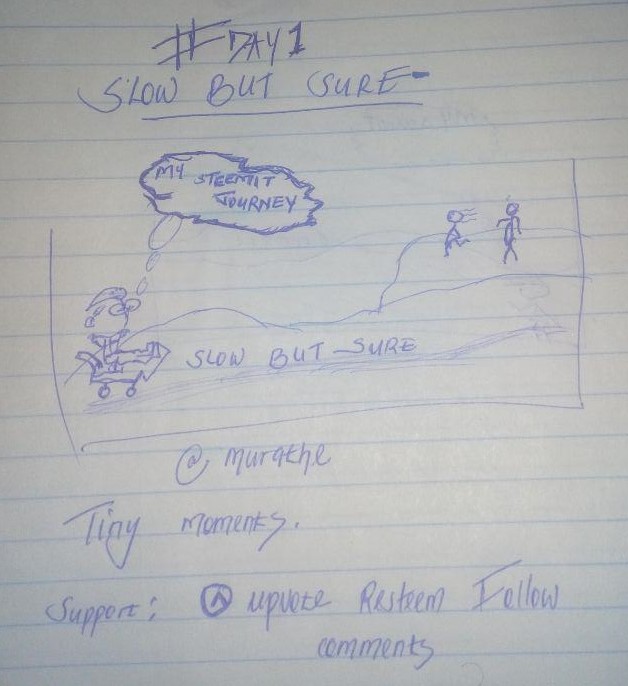 #DAY 1
SLOW BUT SURE-
MY STEEMIT
JOURNEY
SLOW BUT SURE
@murathe
Tiny moments.
Support: upvote Resteem Follow
comments